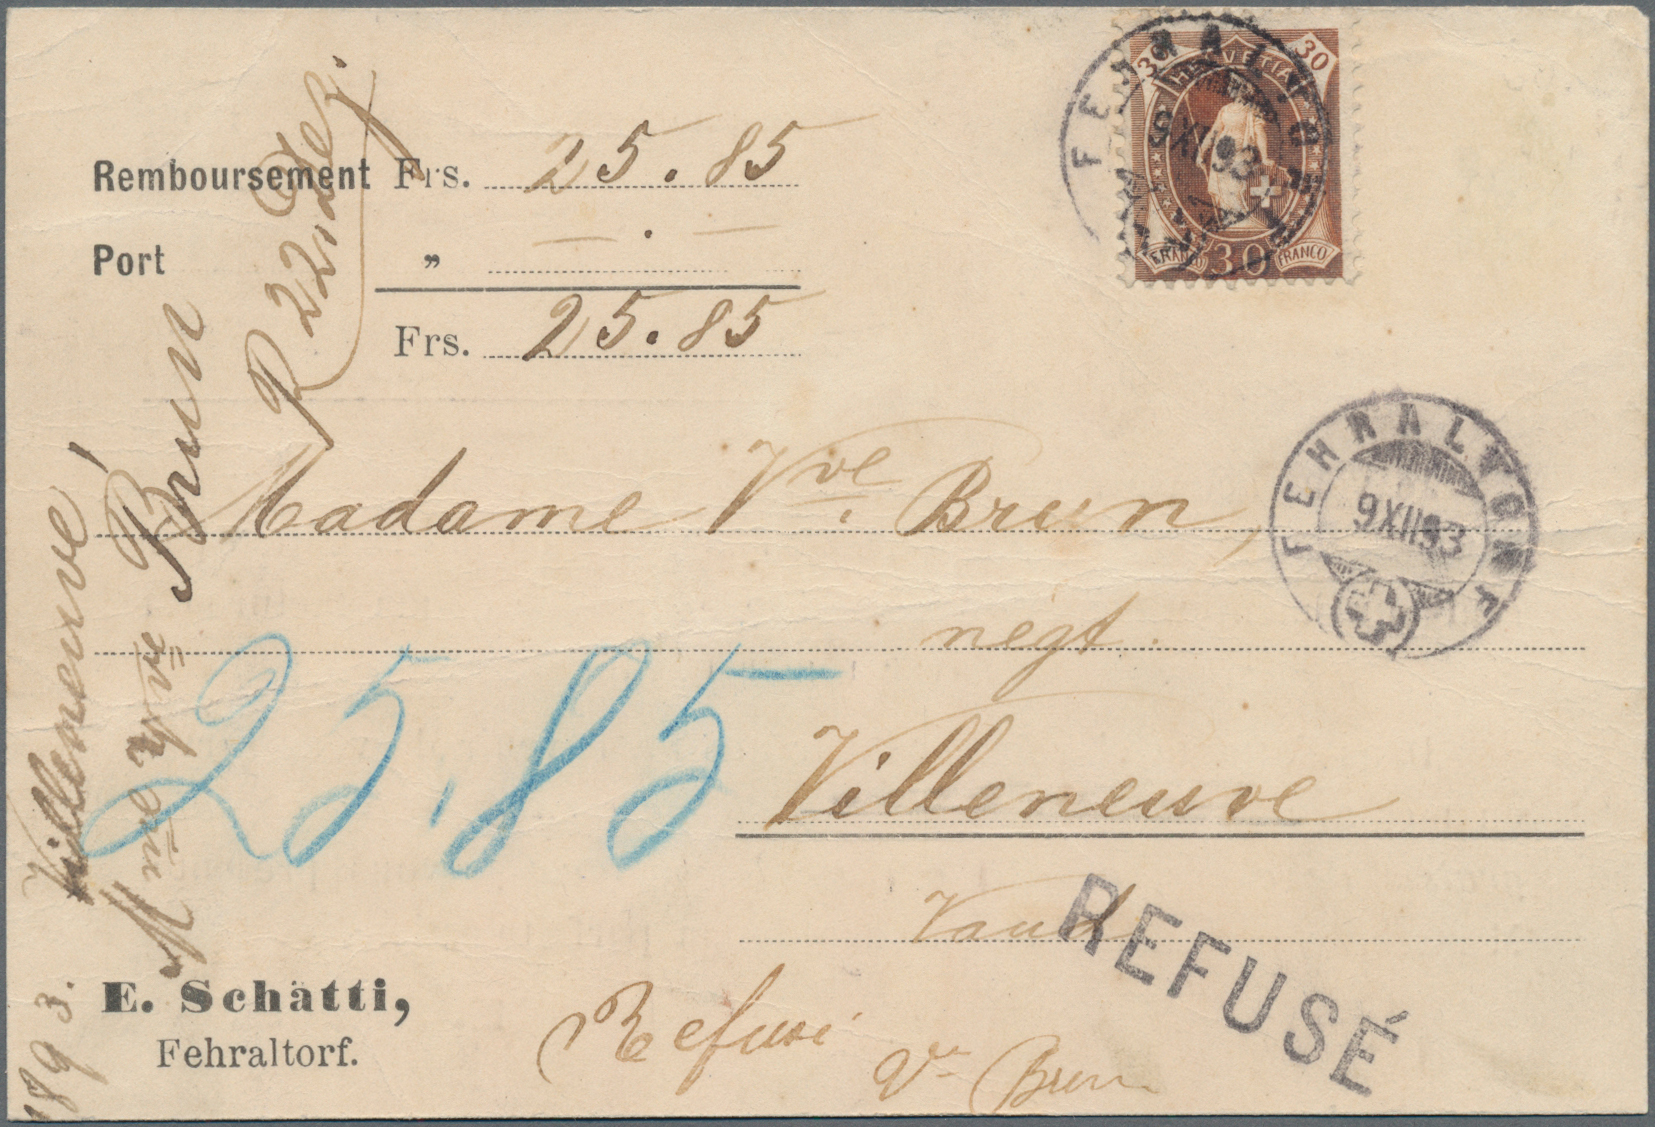 Remboursement Frs. 25.85
Port " — . —
Frs. 25.85
R 22. Dez.
30 HELVETIA 30
FRANCO 30 FRANCO
FEHRALTORF
9 XII 93
FEHRALTORF
9 XII 93
Madame Vve. Brun,
negt.
Villeneuve
Vaud
25.85
REFUSÉ
Refusé
Ve Brun
E. Schätti,
Fehraltorf.
1893. Villeneuve
Mme Vve Brun